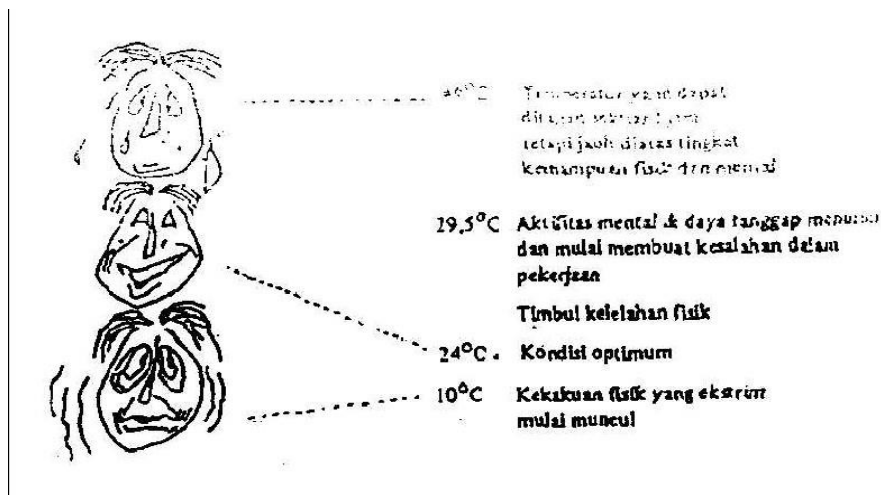 Temperatur yang dapat
ditahan sekitar 1 jam
tetapi jauh diatas tingkat
kemampuan fisik dan mental
29,5°C Aktifitas mental & daya tanggap menurun
dan mulai membuat kesalahan dalam
pekerjaan
Timbul kelelahan fisik
24°C. Kondisi optimum
10°C Kekakuan fisik yang ekstrim
mulai muncul